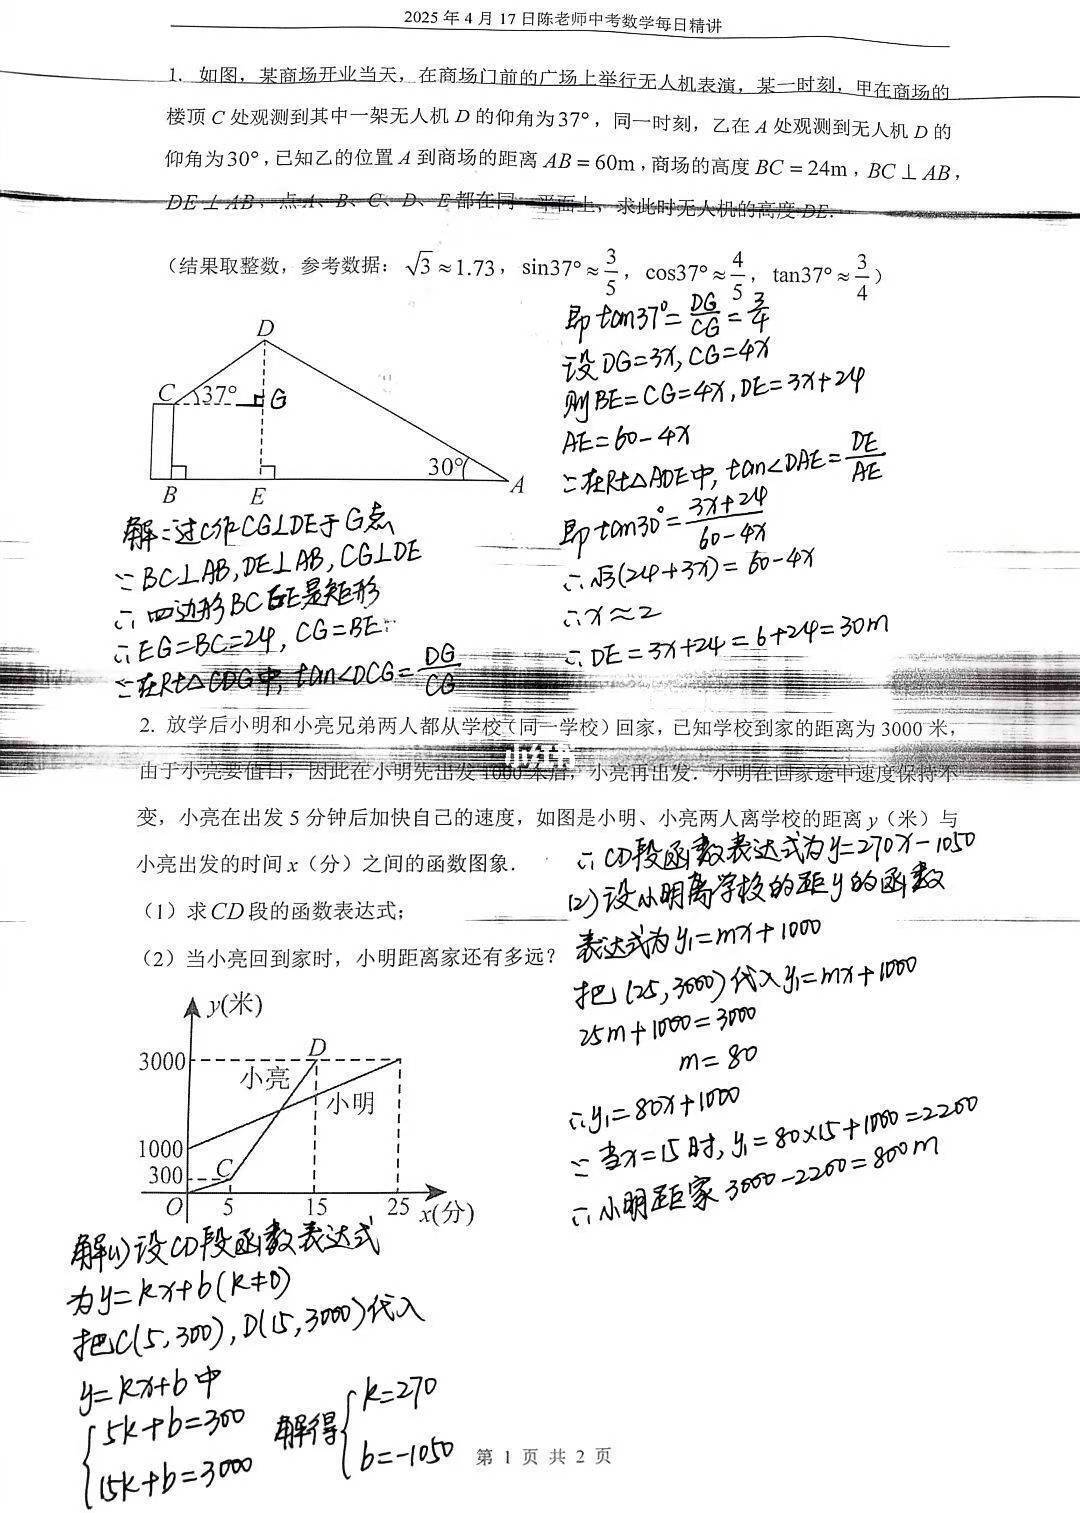 2025 年 4 月 17 日陈老师中考数学每日精讲
1. 如图，某商场开业当天，在商场门前的广场上举行无人机表演，某一时刻，甲在商场的
楼顶 C 处观测到其中一架无人机 D 的仰角为37°，同一时刻，乙在 A 处观测到无人机 D 的
仰角为30°，已知乙的位置 A 到商场的距离 AB = 60m，商场的高度 BC = 24m，BC ⊥ AB，
DE ⊥ AB，点 A、B、C、D、E 都在同一平面上，求此时无人机的高度 DE.
（结果取整数，参考数据：√3 ≈1.73，sin37°≈3/5，cos37°≈4/5，tan37°≈3/4）
D
C
37°
G
30°
B
E
A
解:过C作CG⊥DE于G点
∵BC⊥AB,DE⊥AB,CG⊥DE
∴四边形BCGE是矩形
∴EG=BC=24, CG=BE
∵在Rt△CDG中, tan∠DCG=DG/CG
即tan37°=DG/CG=3/4
设DG=3x, CG=4x
则BE=CG=4x, DE=3x+24
AE=60-4x
∵在Rt△ADE中, tan∠DAE=DE/AE
即tan30°=(3x+24)/(60-4x)
∴√3(24+3x)=60-4x
∴x≈2
∴DE=3x+24=6+24=30m
2. 放学后小明和小亮兄弟两人都从学校（同一学校）回家，已知学校到家的距离为 3000 米，
小红书
由于小亮要值日，因此在小明先出发 1000 米后，小亮再出发．小明在回家途中速度保持不
变，小亮在出发 5 分钟后加快自己的速度，如图是小明、小亮两人离学校的距离 y（米）与
小亮出发的时间 x（分）之间的函数图象．
（1）求CD段的函数表达式；
（2）当小亮回到家时，小明距离家还有多远？
y(米)
3000
D
小亮
小明
1000
300
C
O
5
15
25
x(分)
解(1)设CD段函数表达式
为y=kx+b(k≠0)
把C(5,300), D(15,3000)代入
y=kx+b中
{5k+b=300
15k+b=3000
解得{k=270
b=-1050
∴CD段函数表达式为y=270x-1050
(2)设小明离学校的距y的函数
表达式为y₁=mx+1000
把(25,3000)代入y₁=mx+1000
25m+1000=3000
m=80
∴y₁=80x+1000
∵当x=15时, y₁=80×15+1000=2200
∴小明距家3000-2200=800m
第 1 页 共 2 页